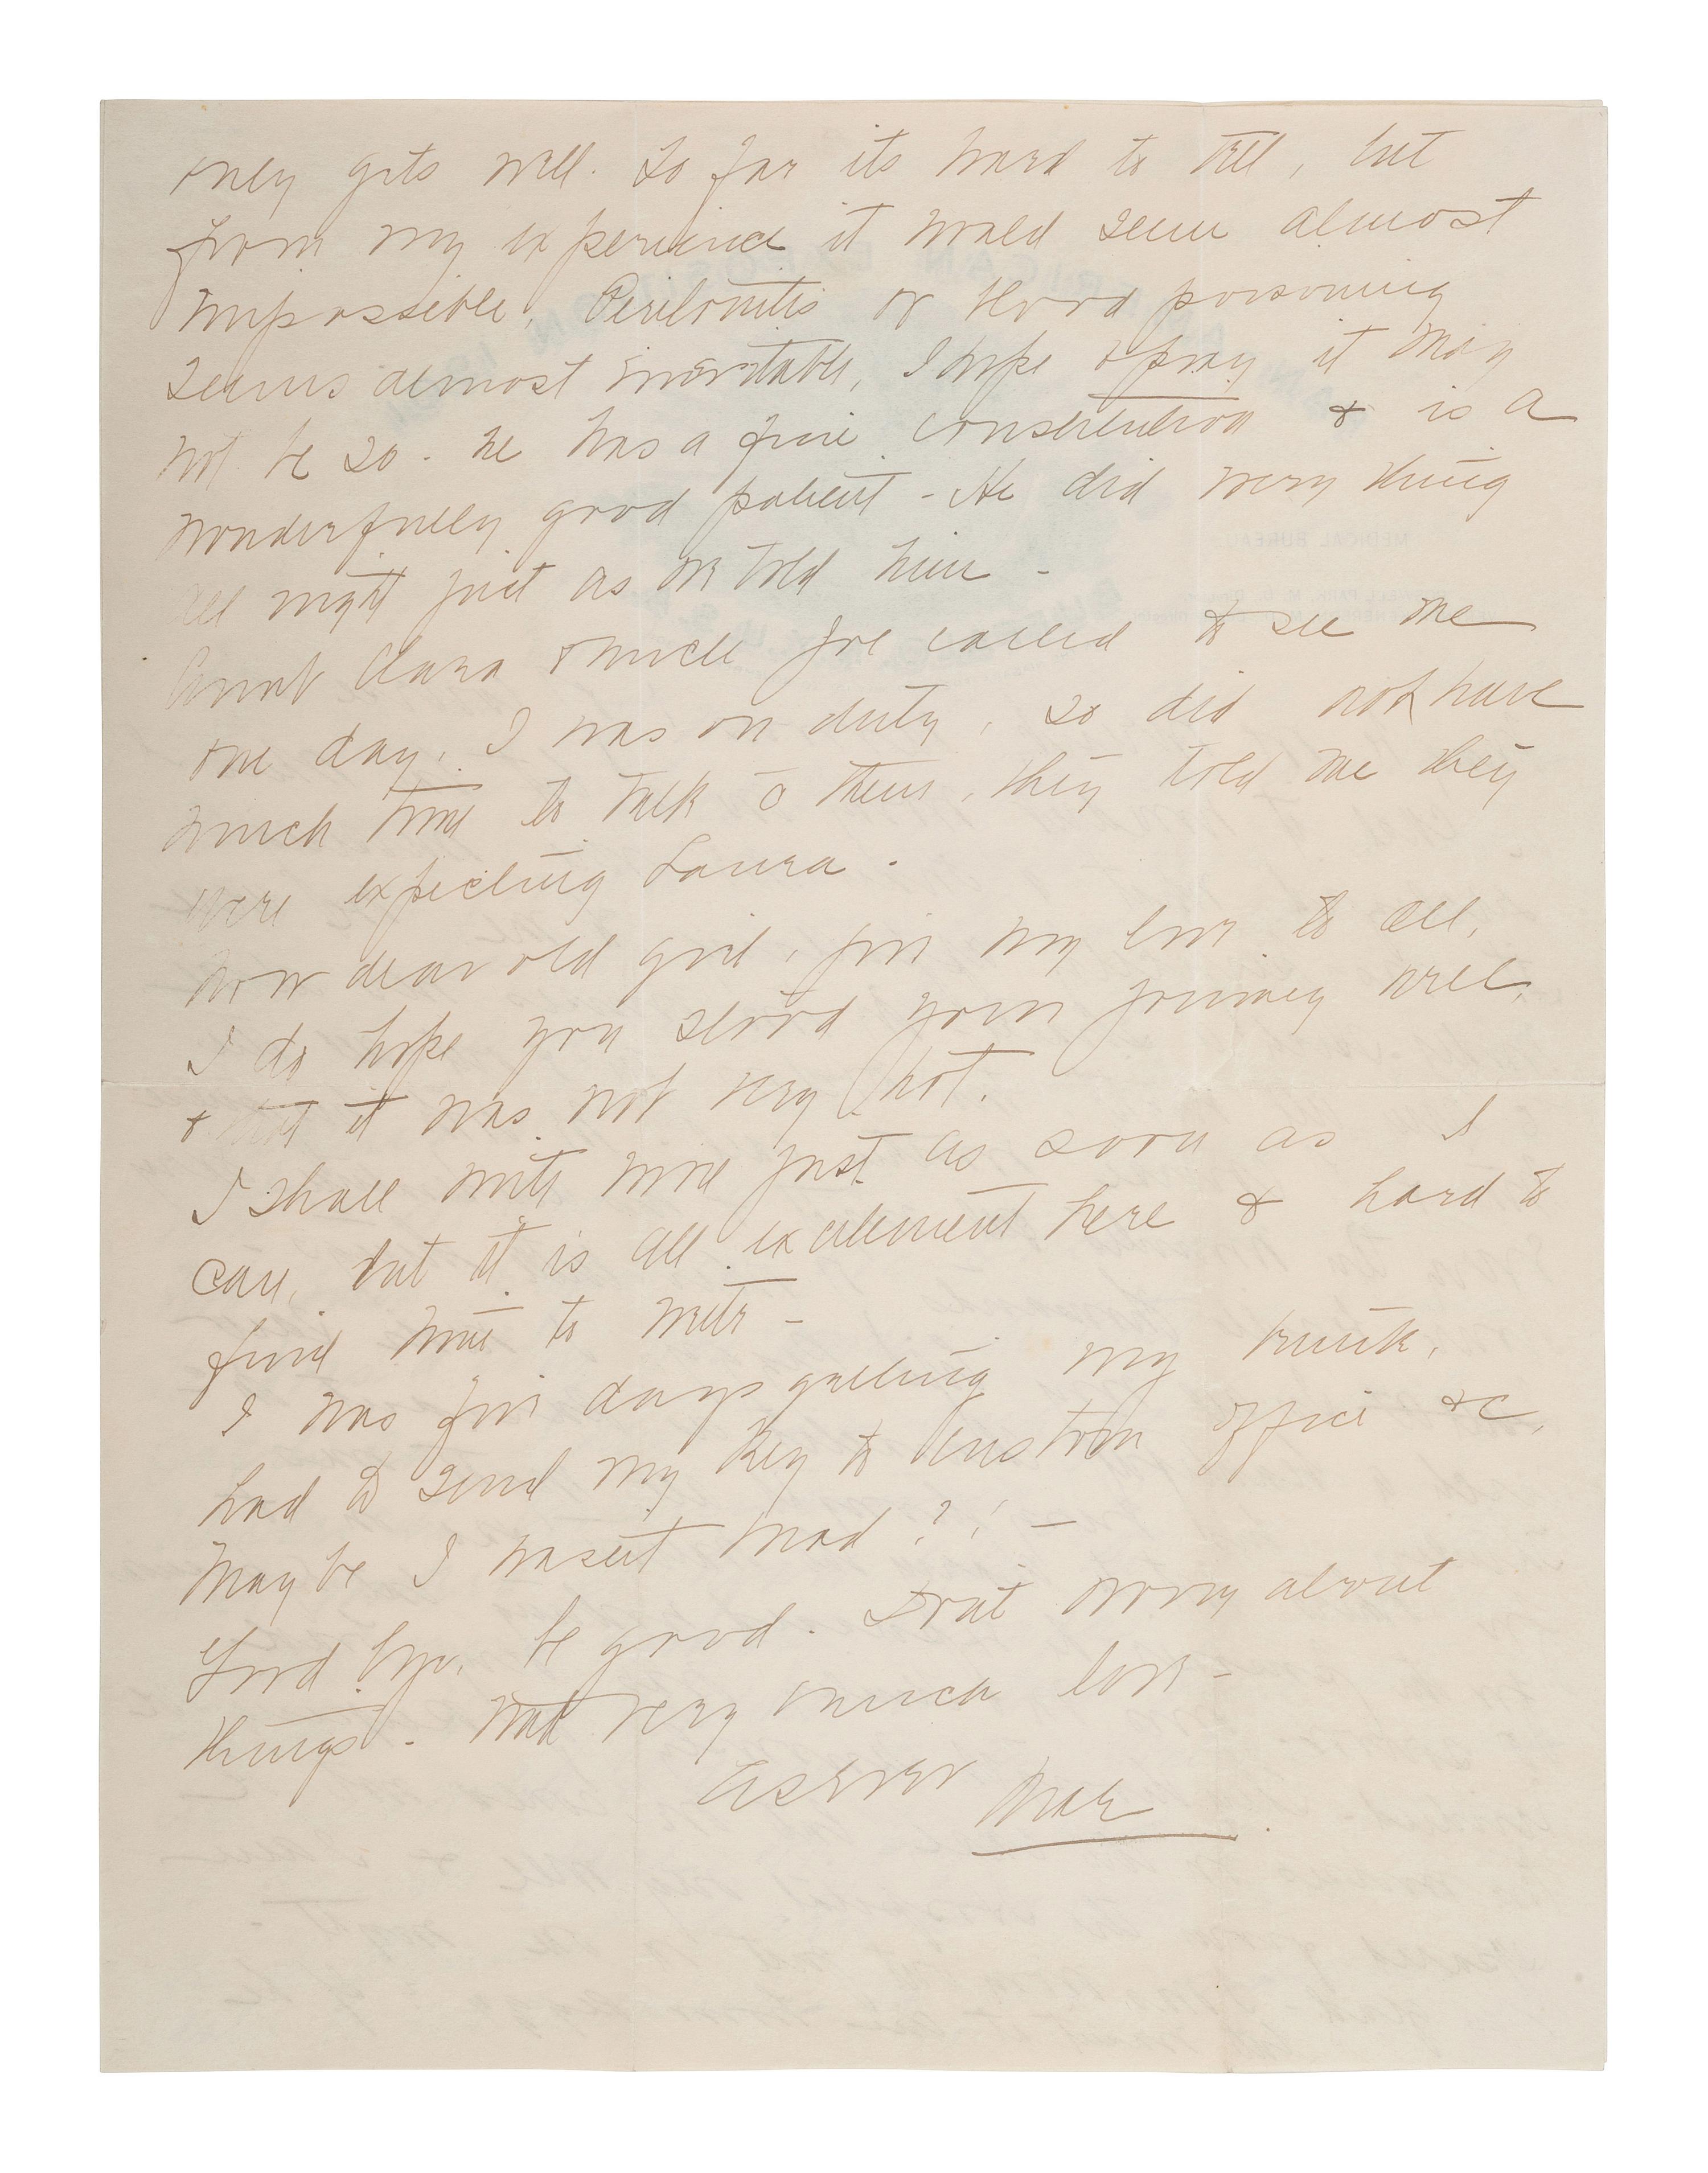 only gets well. So far its hard to tell, but
from my experience it would seem almost
impossible, Peritonitis or blood poisoning
seems almost inevitable, I hope & pray it may
not be so. he has a fine constitution & is a
wonderfully good patient - He did every thing
all night just as we told him -
Aunt Clara & uncle Joe called to see me
one day. I was on duty, so did not have
much time to talk c̄ them, they told me they
were expecting Laura.
Now dear old girl, give my love to all,
I do hope you stood your journey well,
& that it was not very hot.
I shall write more just as soon as I
can, but it is all excitement here & hard to
find time to write -
I was five days getting my trunk,
had to send my key to Custom office &c,
Maybe I wasent mad?! -
Good bye, be good. Dont worry about
things. With very much love -
as ever Mae
MEDICAL BUREAU